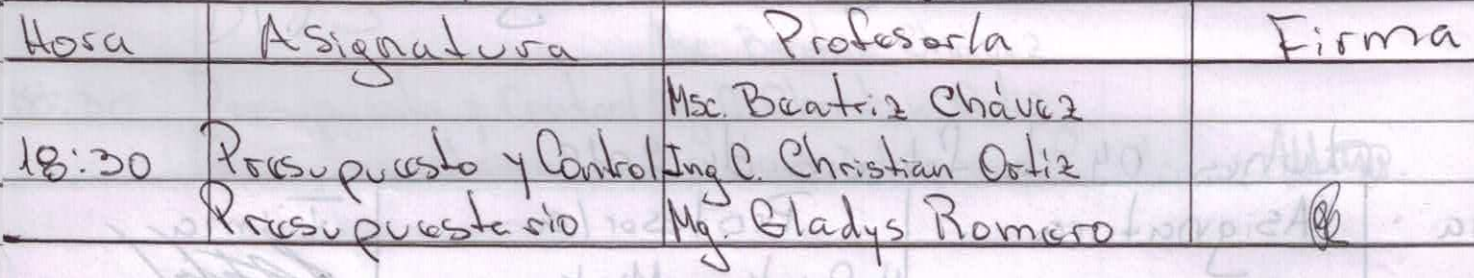 Hora Asignatura Profesor/a Firma
Msc. Beatriz Chávez
18:30 Presupuesto y Control Ing C. Christian Ortiz
Presupuestario Mg. Gladys Romero